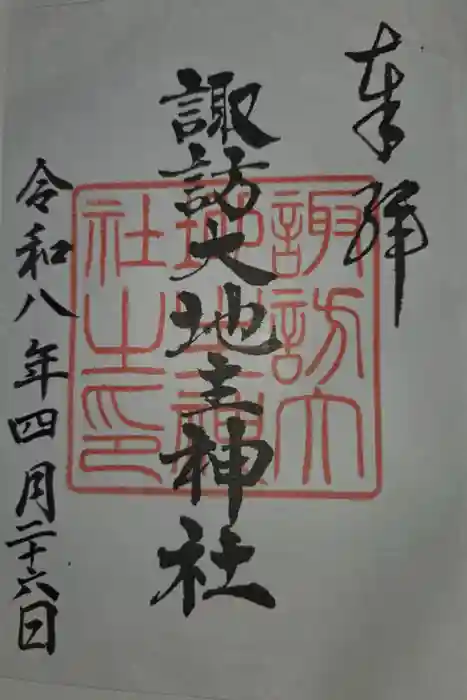 奉拝
諏訪大地主神社
令和八年四月二十六日
諏訪大
地主神
社之印